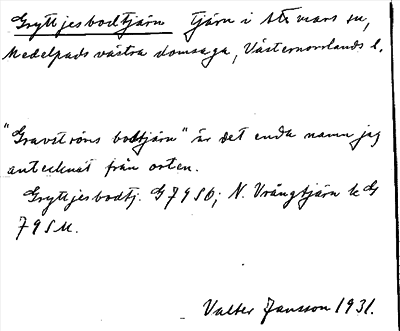 Gryttjesbodtjärn tjärn i Attmars sn,
Medelpads västra domsaga, Västernorrlands l.
"Gravströns bodtjärn" är det enda namn jag
antecknat från orten.
Gryttjesbodtj. G 79 SO; N. Vrångtjärn k G
79 SU.
Valter Jansson 1931.